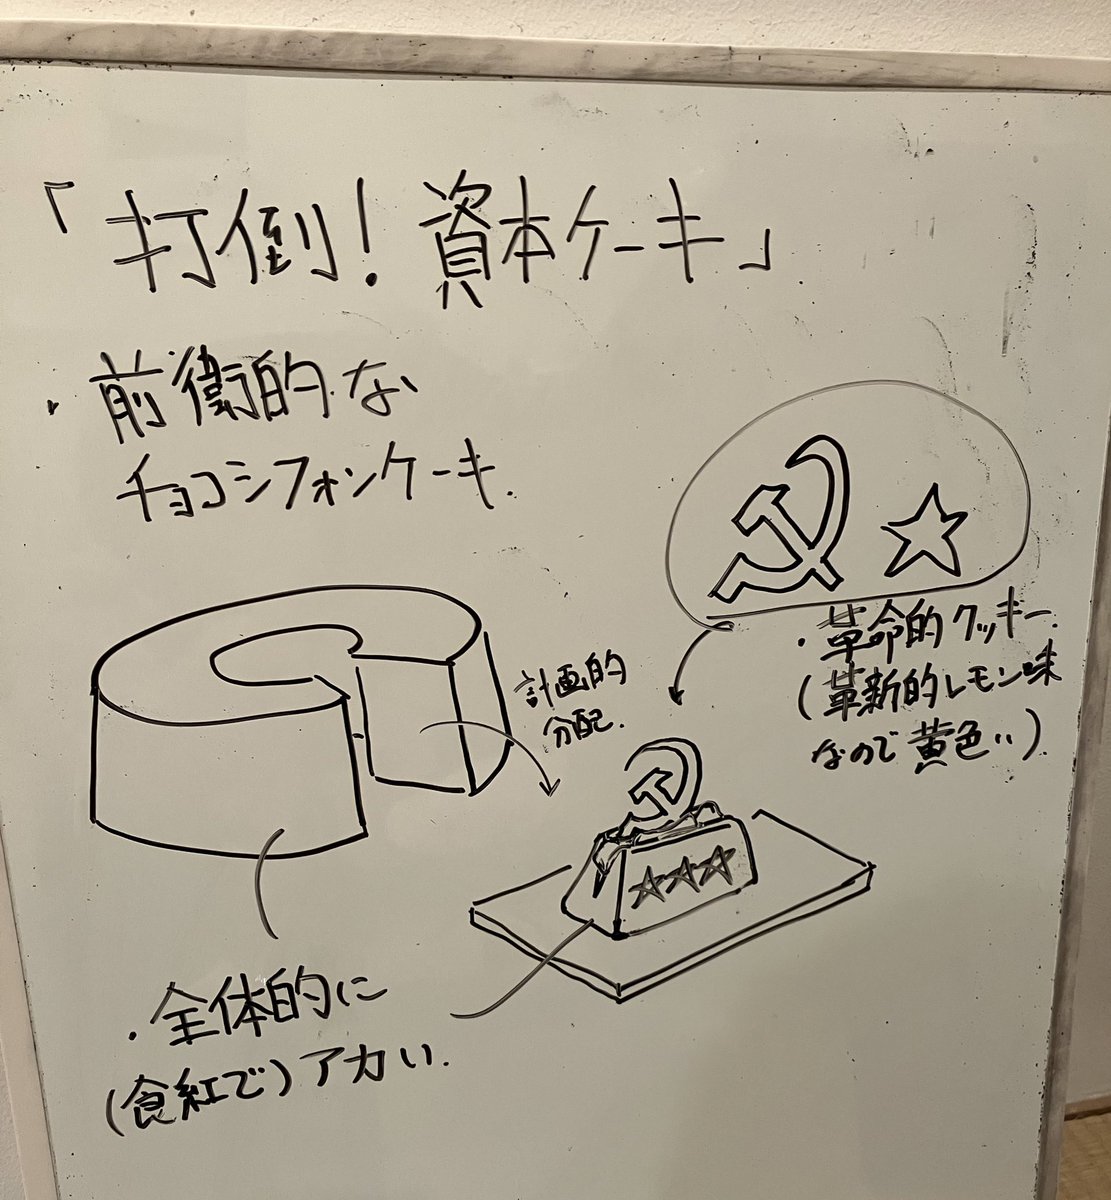 「打倒！資本ケーキ」
・前衛的な
チョコシフォンケーキ.
・革命的クッキー.
(革新的レモン味
なので黄色い).
計画的
分配.
・全体的に
(食紅で)アカい.